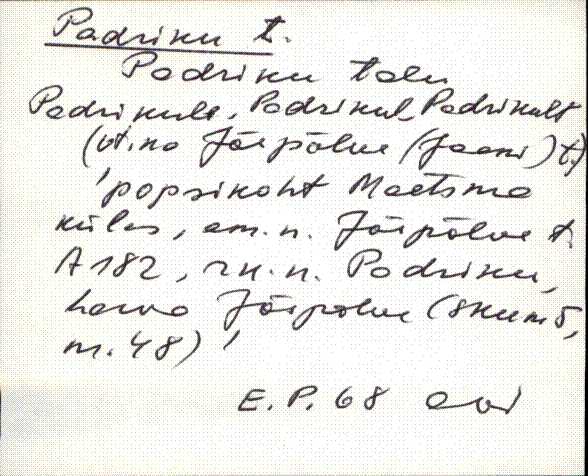 Padriku t.
Padriku talu
Padrikule, Padrikul, Padrikult
(vt. ka Jõepõlve (Jaani) t.)
'popsikoht Maetsma
külas, am. n. Jõepõlve t.
A 182, rk. n. Padriku,
harva Jõepõlve (skeemõ,
m. 48)'
E. P. 68